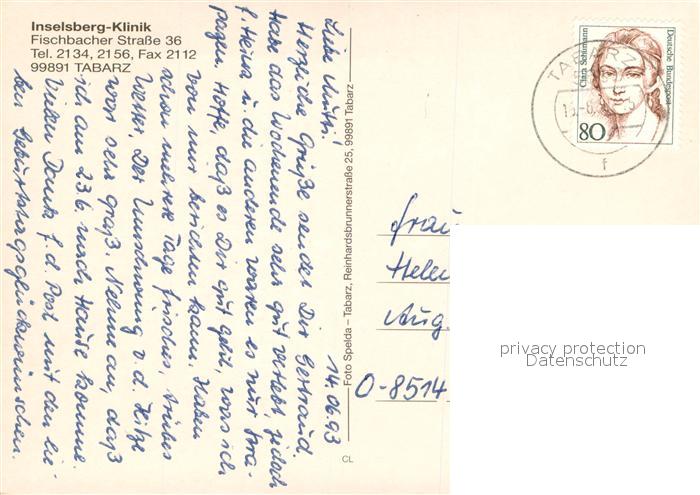 Inselsberg-Klinik
Fischbacher Straße 36
Tel. 2134, 2156, Fax 2112
99891 TABARZ
14.06.93
Liebe Mutti!
Herzliche Grüße sendet Dir Gertraud.
Habe das Wochenende sehr gut verlebt jedoch
f. Heinz u. die anderen waren es nur Stra-
pazen. Hoffe, daß es Dir gut geht, was ich
von mir berichten kann. Haben
schon mehrere Tage frisches, trübes
Wetter. Der Umschwung v. d. Hitze
war sehr groß. Nehme an, daß
ich am 23.6. nach Hause komme.
Vielen Dank f. d. Post mit den lie-
ben Geburtstagsglückwünschen.
Foto Spelda – Tabarz, Reinhardsbrunnerstraße 25, 99891 Tabarz
CL
Clara Schumann
Deutsche Bundespost
80
TABARZ
f
Frau
Helen
Aug.
O-8514
privacy protection
Datenschutz